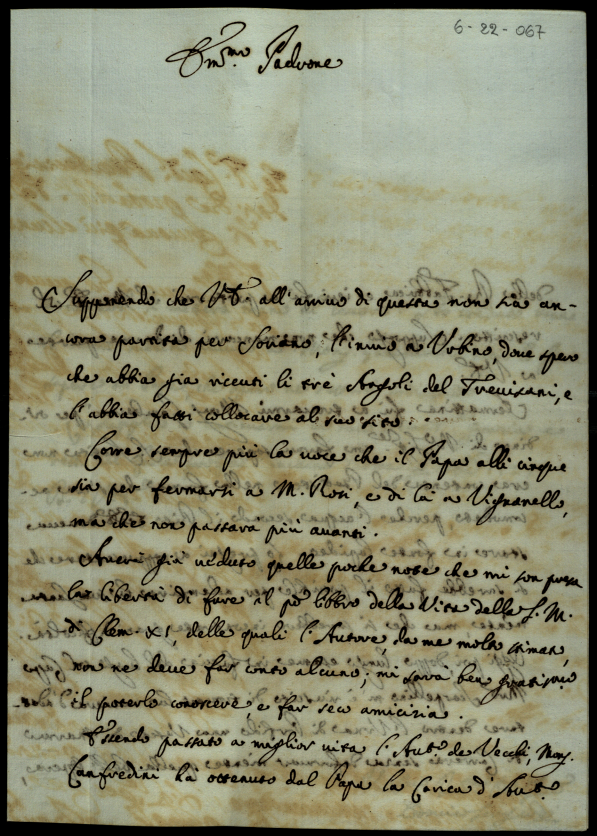 6-22-067
Em.mo Padrone
Supponendo che V.E. all'arrivo di questa non sia an-
cora partita per Soriano, l'invio a Urbino, dove spero
che abbia già ricevuti li trè Angoli del Trevisani, e
l'abbia fatti collocare al suo sito.
Corre sempre più la voce che il Papa alli cinque
sia per fermarsi a M. Rosi, e di là a Vignanello,
ma che non passarà più avanti.
Averà già veduto quelle poche note che mi son presa
la libertà di fare al po libbro della Vita della S. M.
di Clem. XI, delle quali l'Autore, da me molto stimato,
non ne deve far conto alcuno; mi sarà ben gratissimo
il poterlo conoscere, e far seco amicizia.
Essendo passato a miglior vita l'Aud.e de Vecchi, Mons.
Canfredini ha ottenuto dal Papa la Carica d'